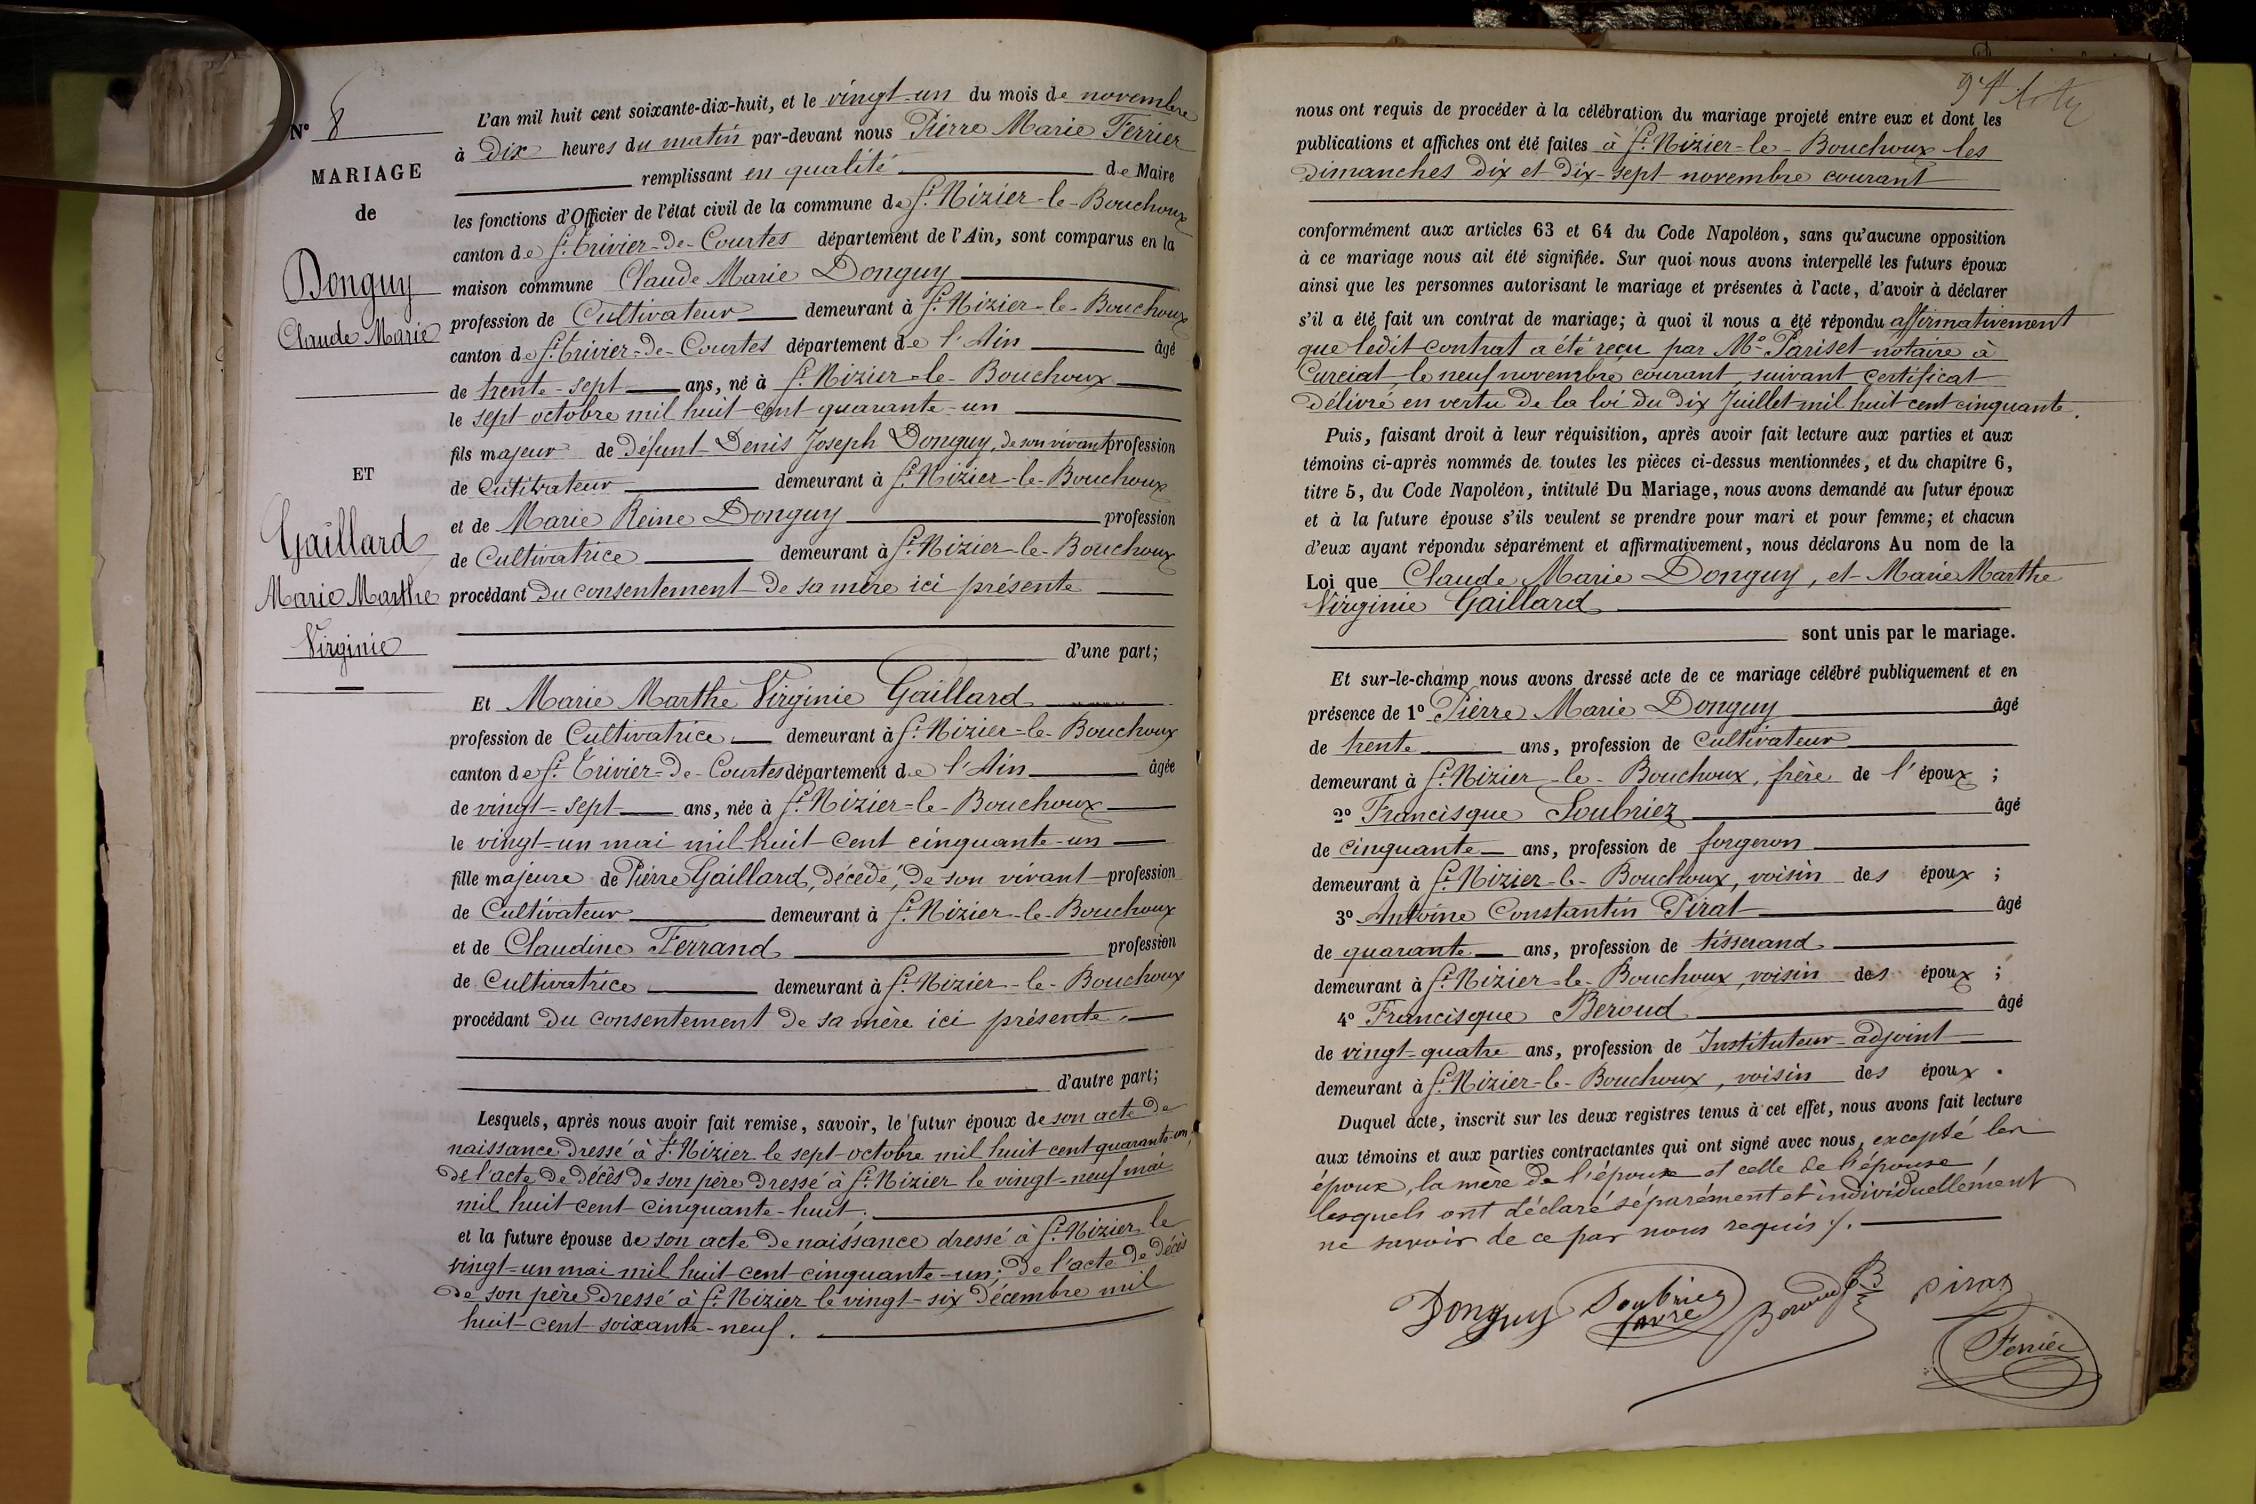 N° 8
MARIAGE
de
Donguy
Claude Marie
ET
Gaillard
Marie Marthe
Virginie
L'an mil huit cent soixante-dix-huit, et le vingt-un du mois de novembre
à Dix heures du matin par-devant nous Pierre Marie Ferrier
remplissant en qualité de Maire
les fonctions d'Officier de l'état civil de la commune de St. Nizier-le-Bouchoux
canton de St. Trivier-de-Courtes département de l'Ain, sont comparus en la
maison commune Claude Marie Donguy
profession de Cultivateur demeurant à St. Nizier-le-Bouchoux
canton de St. Trivier-de-Courtes département de l'Ain âgé
de trente-sept ans, né à St. Nizier-le-Bouchoux
le sept octobre mil huit cent quarante-un
fils majeur de défunt Denis Joseph Donguy, de son vivant profession
de Cultivateur demeurant à St. Nizier-le-Bouchoux
et de Marie Reine Donguy profession
de Cultivatrice demeurant à St. Nizier-le-Bouchoux
procédant Du consentement De sa mère ici présente
d'une part;
Et Marie Marthe Virginie Gaillard
profession de Cultivatrice demeurant à St. Nizier-le-Bouchoux
canton de St. Trivier-de-Courtes département de l'Ain âgée
de vingt-sept ans, née à St. Nizier-le-Bouchoux
le vingt-un mai mil huit cent cinquante-un
fille majeure de Pierre Gaillard, décédé, de son vivant profession
de Cultivateur demeurant à St. Nizier-le-Bouchoux
et de Claudine Ferrand profession
de Cultivatrice demeurant à St. Nizier-le-Bouchoux
procédant Du consentement De sa mère ici présente.
d'autre part;
Lesquels, après nous avoir fait remise, savoir, le futur époux de son acte de
naissance dressé à St. Nizier le sept octobre mil huit cent quarante-un,
de l'acte de décès de son père dressé à St. Nizier le vingt-neuf mai
mil huit cent cinquante-huit;
et la future épouse de son acte de naissance dressé à St. Nizier le
vingt-un mai mil huit cent cinquante-un; de l'acte de décès
de son père dressé à St. Nizier le vingt-six Décembre mil
huit-cent-soixante-neuf.
nous ont requis de procéder à la célébration du mariage projeté entre eux et dont les
publications et affiches ont été faites à St. Nizier-le-Bouchoux les
dimanches dix et dix-sept novembre courant
conformément aux articles 63 et 64 du Code Napoléon, sans qu'aucune opposition
à ce mariage nous ait été signifiée. Sur quoi nous avons interpellé les futurs époux
ainsi que les personnes autorisant le mariage et présentes à l'acte, d'avoir à déclarer
s'il a été fait un contrat de mariage; à quoi il nous a été répondu affirmativement
que ledit contrat a été reçu par Me Pariset notaire à
Curciat, le neuf novembre courant, suivant certificat
délivré en vertu de la loi du dix Juillet mil huit cent cinquante.
Puis, faisant droit à leur réquisition, après avoir fait lecture aux parties et aux
témoins ci-après nommés de toutes les pièces ci-dessus mentionnées, et du chapitre 6,
titre 5, du Code Napoléon, intitulé Du Mariage, nous avons demandé au futur époux
et à la future épouse s'ils veulent se prendre pour mari et pour femme; et chacun
d'eux ayant répondu séparément et affirmativement, nous déclarons Au nom de la
Loi que Claude Marie Donguy, et Marie Marthe
Virginie Gaillard
sont unis par le mariage.
Et sur-le-champ nous avons dressé acte de ce mariage célébré publiquement et en
présence de 1° Pierre Marie Donguy âgé
de trente ans, profession de Cultivateur
demeurant à St. Nizier-le-Bouchoux, frère de l'époux;
2° Francisque Soubriez âgé
de cinquante ans, profession de forgeron
demeurant à St. Nizier-le-Bouchoux, voisin des époux;
3° Antoine Constantin Pirat âgé
de quarante ans, profession de tisserand
demeurant à St. Nizier-le-Bouchoux, voisin des époux;
4° Francisque Beroud âgé
de vingt-quatre ans, profession de Instituteur-adjoint
demeurant à St. Nizier-le-Bouchoux, voisin des époux.
Duquel acte, inscrit sur les deux registres tenus à cet effet, nous avons fait lecture
aux témoins et aux parties contractantes qui ont signé avec nous, excepté les
époux, la mère de l'époux et celle de l'épouse,
lesquels ont déclaré séparément et individuellement
ne savoir de ce par nous requis ./.
Donguy Soubriez Beroud Pirat
Ferrier